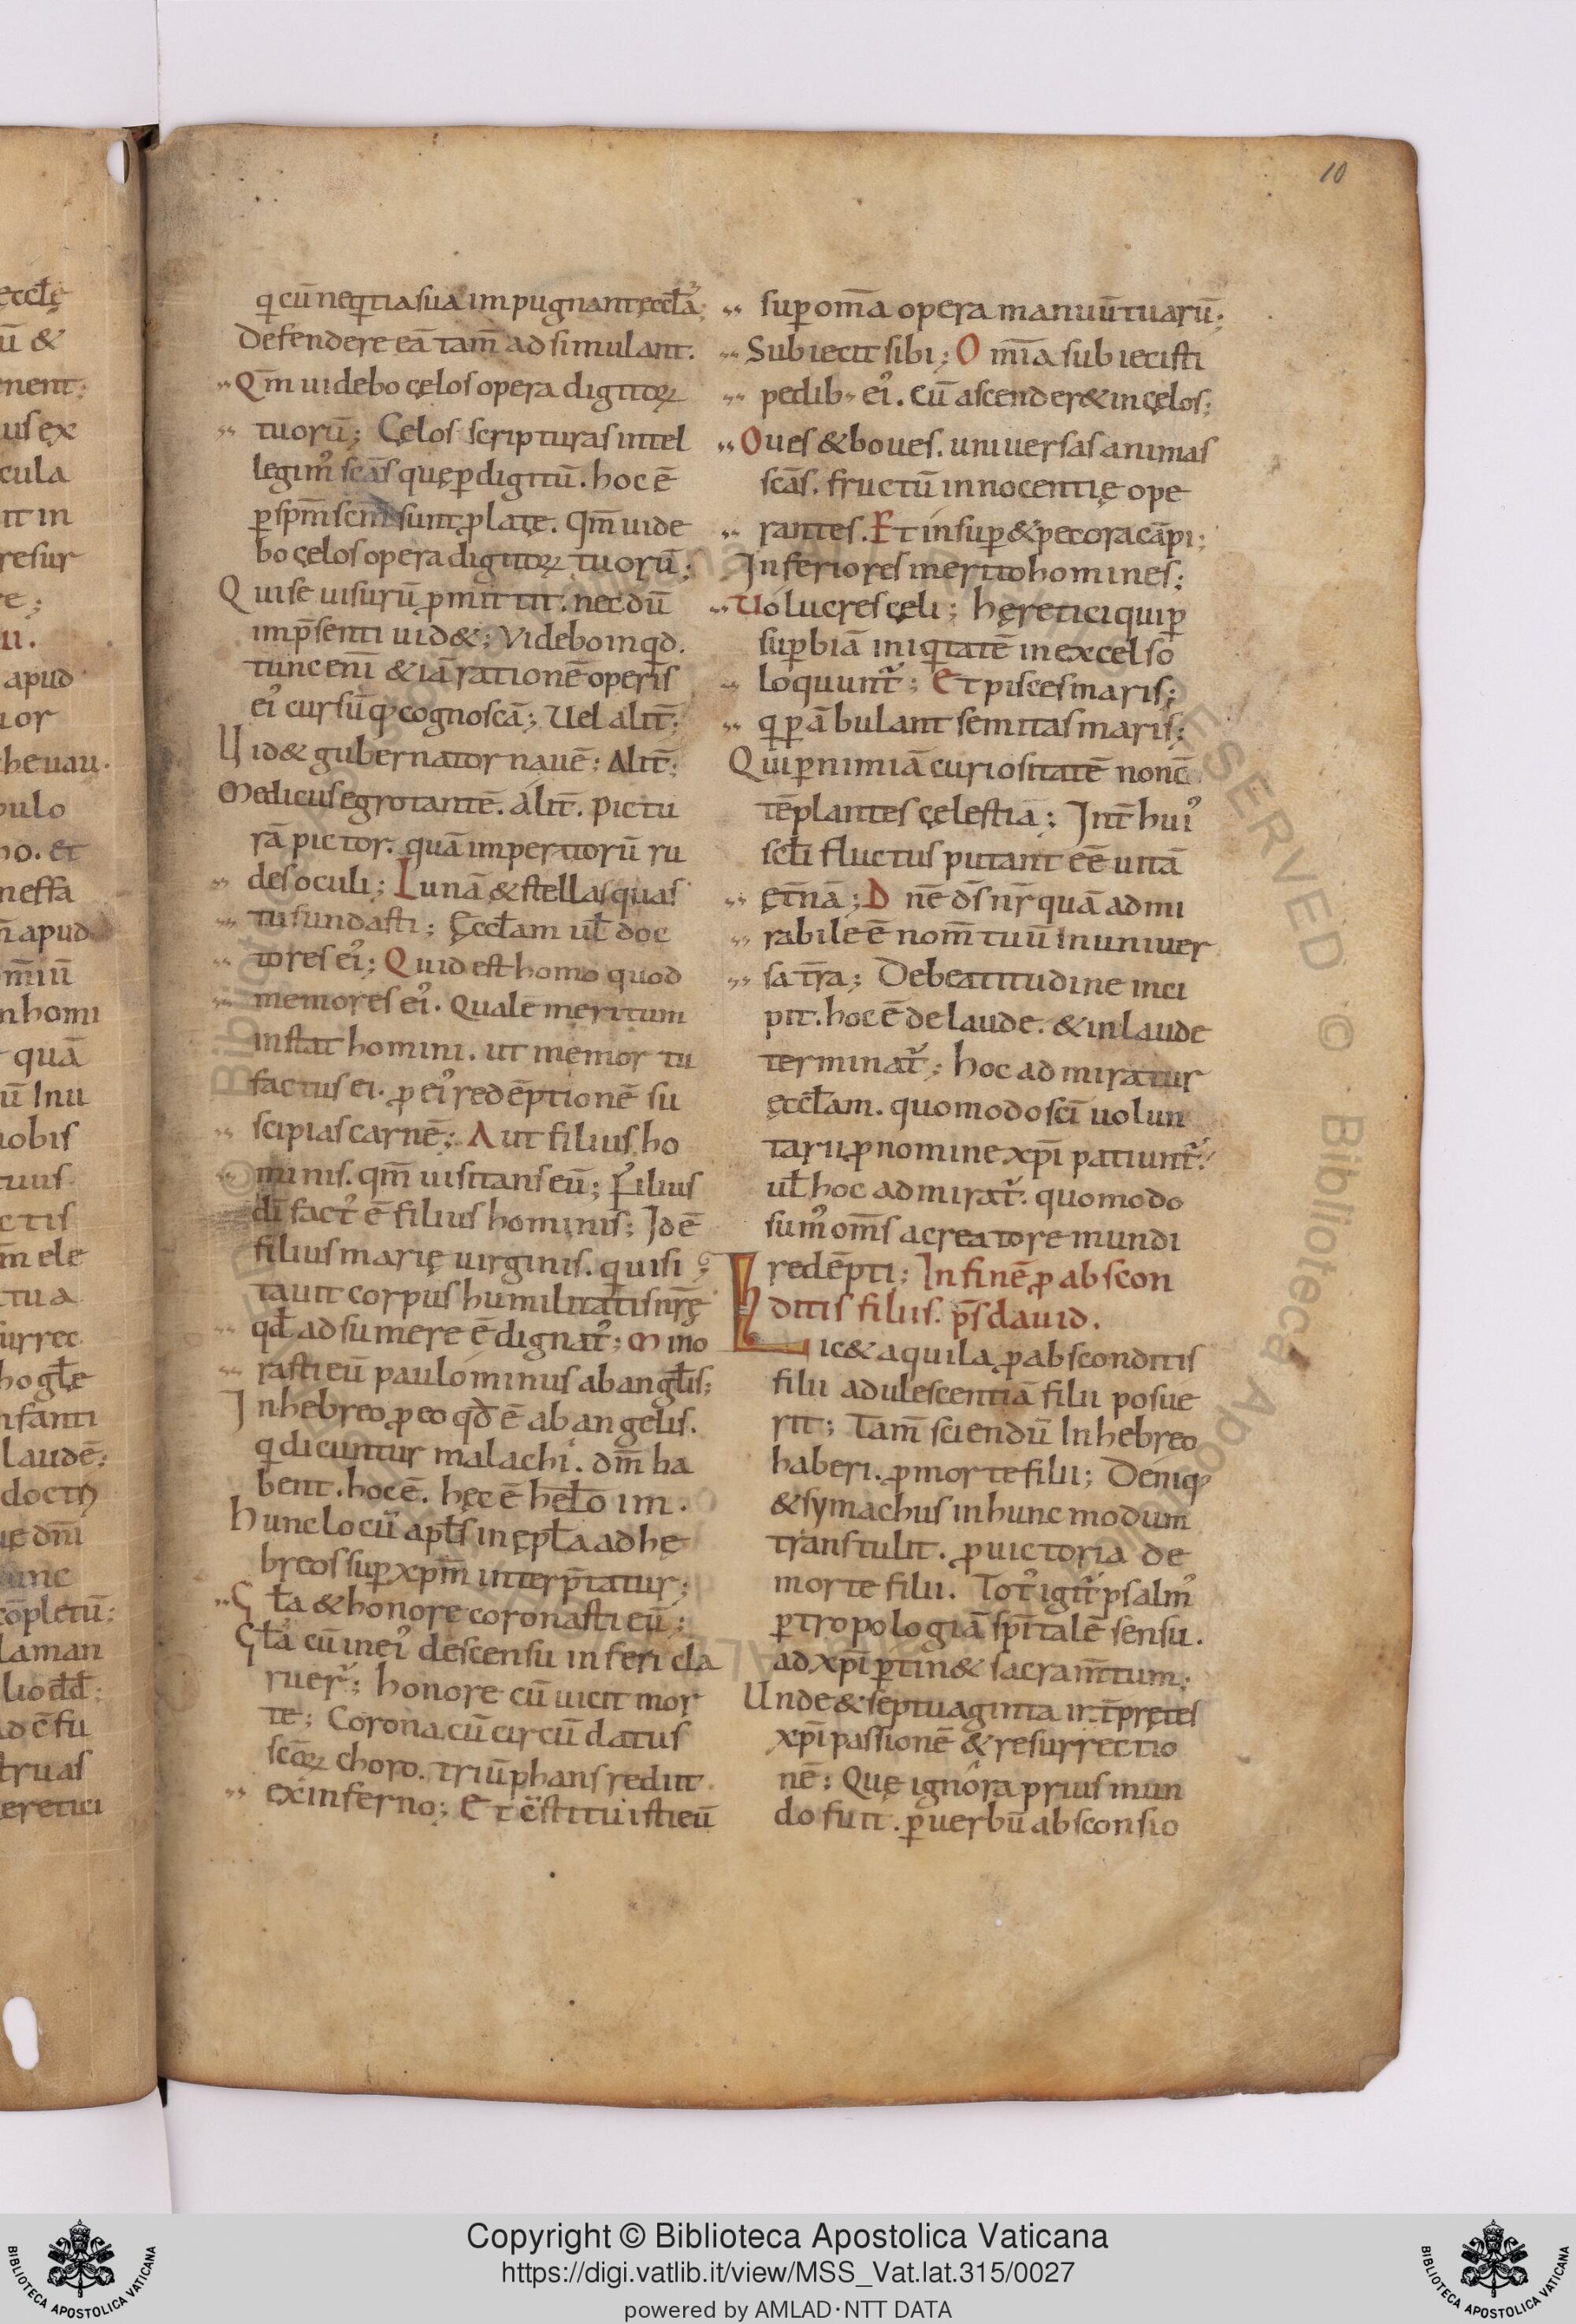 10
q cū neq̄tia sua impugnant ęccłā;
Defendere eā tam̄ adsimulant.
Qm̄ uidebo cęlos opera digitoꝝ
tuorū; Cęlos scripturas intel
legim᾿ scās quę ꝑ digitū. hoc ē
ꝑ spm̄ scm̄ sunt ꝓlatę. Qm̄ uide
bo cęlos opera digitoꝝ tuorū;
Qui se uisurū ꝓmittit. nec dū
in p̄senti uid&; Videbo inqd.
tunc eni᷈ & iā rationē operis
ei᾿ cursūq; cognoscā; Uel alit̄;
Uid& gubernator nauē; Alit̄;
Medicus egrotantē. alit̄. pictu
rā pictor. quā impertiorū ru
des oculi; Lunā & stellas quas
tu fundasti; Ęccłam uł doc
tores ei᾿; Quid est homo quod
memores ei᾿. Quale meritum
instat homini. ut memor tu
factus ei. ꝓ ei᾿ redēptionē su
scipias carnē; Aut filius ho
minis. qm̄ uisitans eū; Filius
di̅ fact᾿ ē filius hominis; Id ē
filius marię uirginis. qui si
tauit corpus humilitatis nr̄ę
qd̄ adsumere ē dignat᾿; Mino
rasti eū paulo minus ab angłis;
In hebreo ꝓ eo qd̄ ē ab angelis.
q dicuntur malachi. dm̄ ha
bent. hoc ē. hęc ē hełoim.
hunc locū apłs in ępła ad he
breos sup xpm̄ interp̄tatur;
Gła & honore coronasti eū;
Gła cū in ei᾿ descensu inferi cla
ruer᷑; honore cū uicit mor
te; Corona cū circū datus
scōꝝ choro. triūphans rediit
ex inferno; Et cstituisti eū
sup om̄a opera manuū tuarū;
Subiecit sibi; Om̄ia subiecisti
pedib; ei᾿. Cū ascender& in cęlos;
Oues & boues. uniuersas animas
scās. fructū innocentię ope
rantes. Et insup & pecora cāpi;
Inferiores merito homines;
Uolucres cęli; hęretici qui ꝑ
supbiā iniq̄tatē in excelso
loquunt᷑; Et pisces maris;
q ꝑābulant semitas maris;
Qui ꝑ nimiā curiositatē non c̄
tēplantes cęlestia; Int̄ hui᾿
scłi fluctus putant eē uitā
ęt̄nā; Dn̄e ds̄ nr̄ quā admi
rabile ē nom̄ tuū in uniuer
sa tr̄a; De beatitudine inci
pit. hoc ē de laude. & in laude
terminat᷑; hoc admiratur
ęccłam. quomodo sci̅ uolun
tarii ꝓ nomine xpi̅ patiunt᷑.
uł hoc admirat᷑. quomodo
sum᾿ om̄s a creatore mundi
redēpti; In finē ꝓ abscon
ditis filii. ps̄ dauid.
hic & aquila ꝓ absconditis
filii adulescentiā filii posue
rit; Tam̄ sciendū In hebreo
haberi. ꝓ morte filii; Deniq;
& symachus in hunc modum
transtulit. ꝓ uictoria de
morte filii. Tot᾿ igit᷑ psalm᾿
ꝑ tropologiā spi̅talē sensu.
ad xpi̅ ꝑtin& sacram̄tum;
Unde & septuaginta int̄pretes
xpi̅ passionē & resurrectio
nē; Quę ignora prius mun
do fuit. ꝑ uerbū absconsio
Copyright © Biblioteca Apostolica Vaticana
https://digi.vatlib.it/view/MSS_Vat.lat.315/0027
powered by AMLAD·NTT DATA